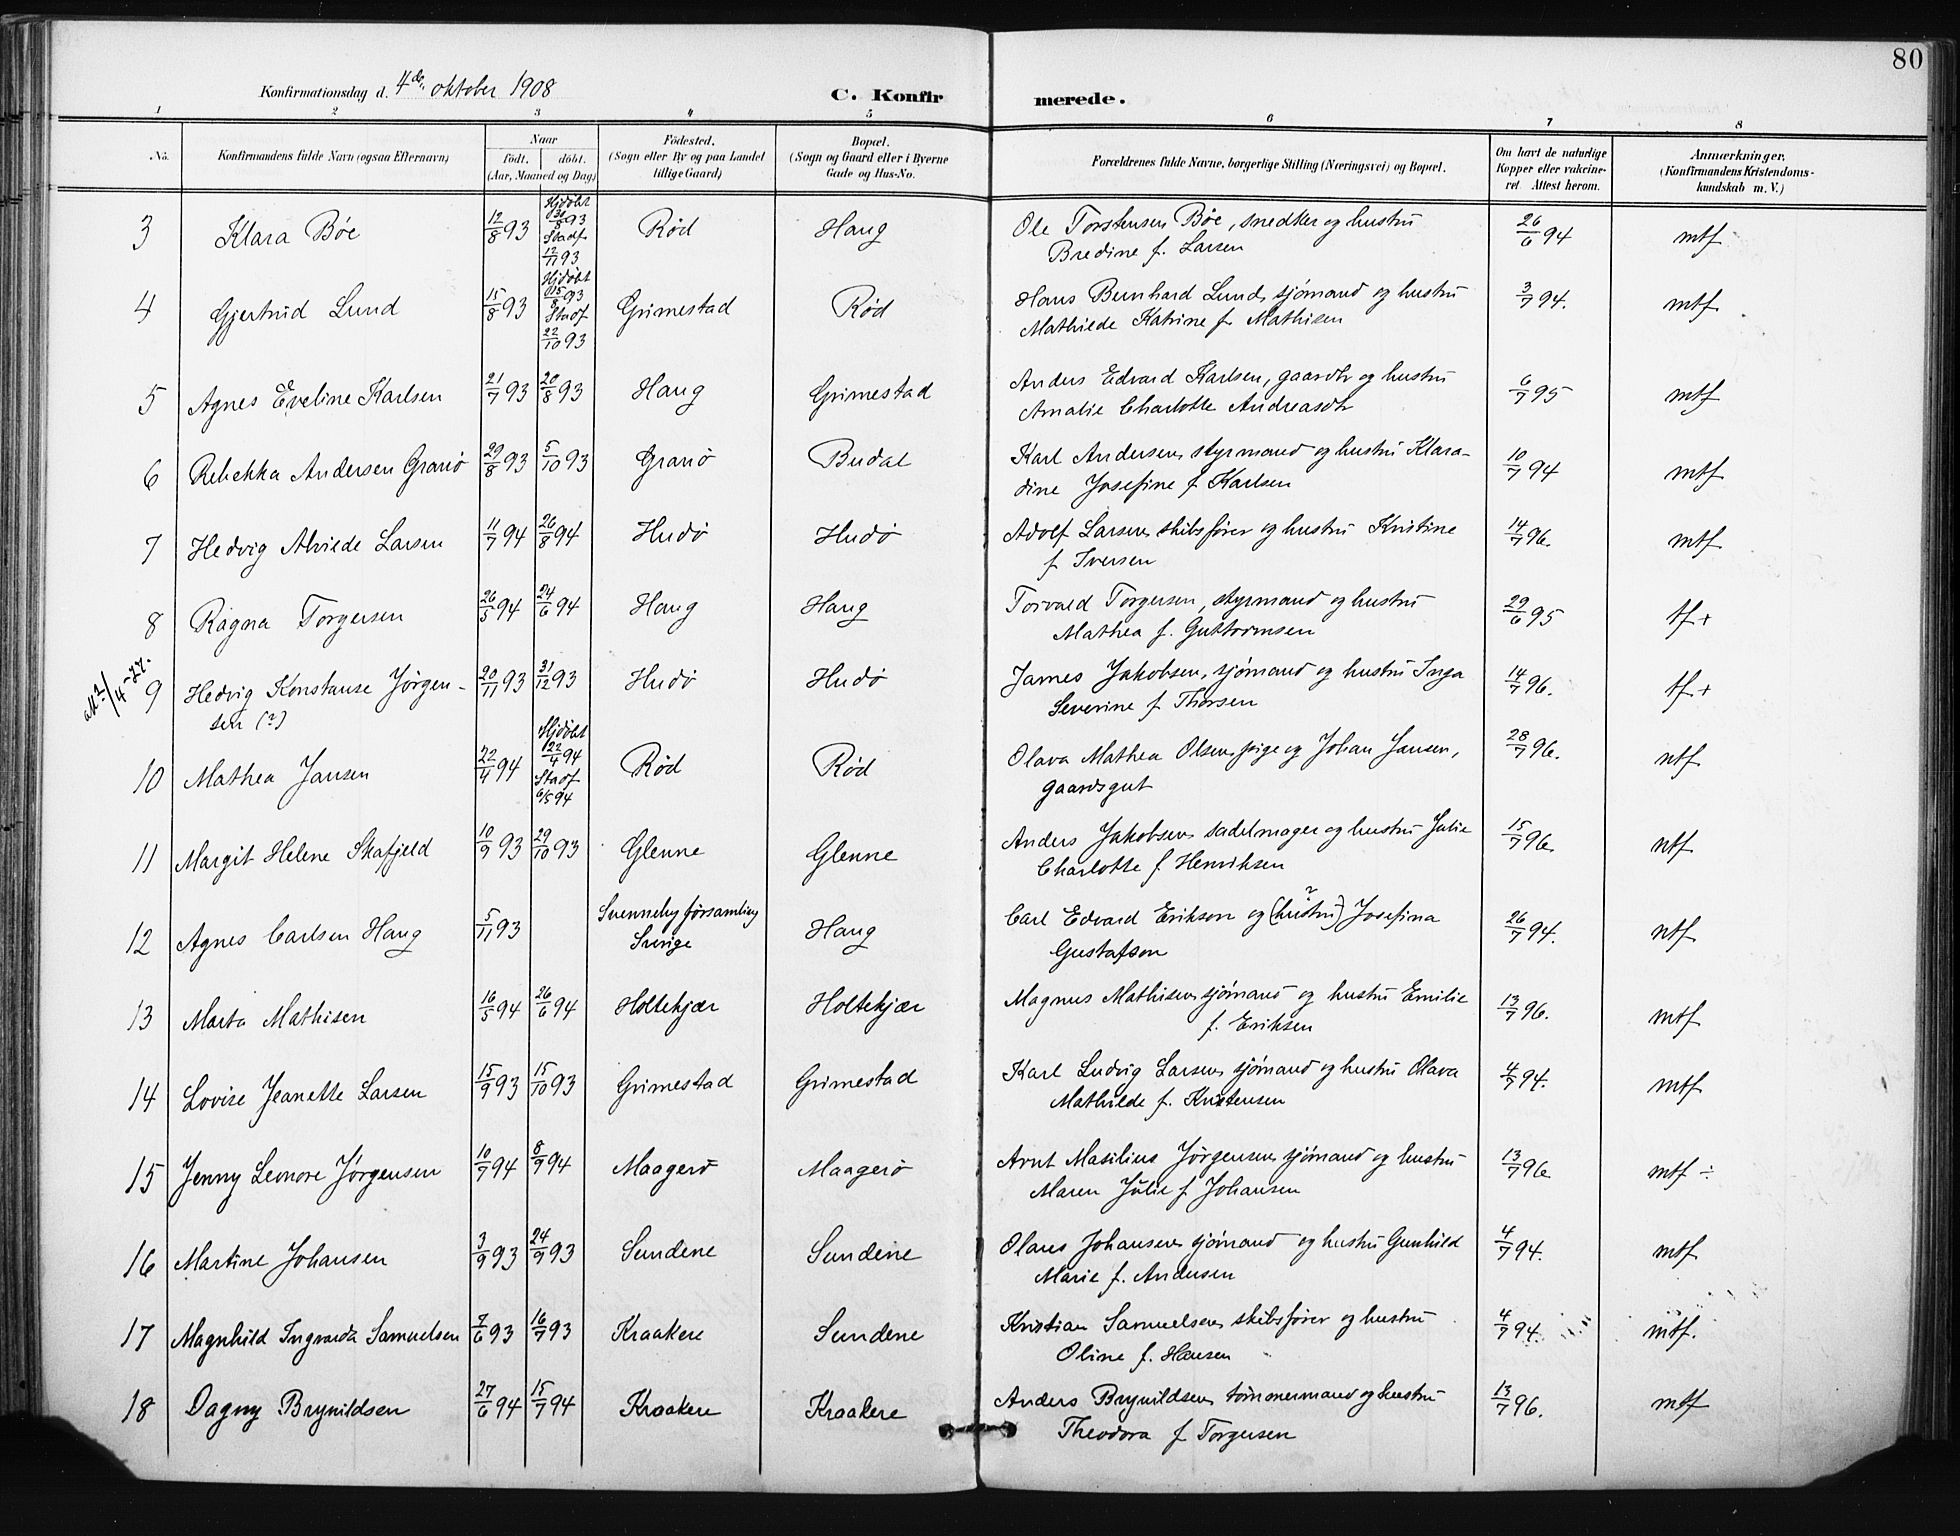 80
Konfirmationsdag d. 4de oktober 1908 C. Konfir merede.
1 2 3 4 5 6 7 8
No. Konfirmandens fulde Navn (ogsaa Efternavn) Naar født. døbt. (Aar, Maaned og Dag) Fødested. (Sogn eller By og paa Landet tillige Gaard) Bopæl. (Sogn og Gaard eller i Byerne Gade og Hus-No. Forældrenes fulde Navne, borgerlige Stilling (Næringsvei) og Bopæl. Om havt de naturlige Kopper eller vakcineret. Attest herom. Anmærkninger. (Konfirmandens Kristendomskundskab m. V.)
3 Klara Bøe 12/8 93 Hjdøbt 20/8 93 Stadf 12/11 93 Rød Haug Ole Torstensen Bøe, snedker og hustru 26/6 94 mtf
Bredine f. Larsen
4 Gjertrud Lund 15/8 93 Hjdøbt 15/8 93 Stadf 22/10 93 Grimestad Rød Hans Bernhard Lund, sjømand og hustru 3/7 94. mtf
Mathilde Katrine f Mathisen
5 Agnes Eveline Karlsen 21/7 93 20/8 93 Haug Grimestad Anders Edvard Karlsen, gaardbr og hustru 6/7 95 mtf
Amalie Charlotte Andreasdtr
6 Rebekka Andersen Granø 29/8 93 5/10 93 Granø Budal Karl Andersen, styrmand og hustru Klara- 10/7 94 mtf
dine Josefine f Karlsen
7 Hedvig Alvilde Larsen 11/7 94 26/8 94 Hudø Hudø Adolf Larsen, skibsfører og hustru Kristine 14/7 96. mtf
f Iversen
8 Ragna Torgersen 26/5 94 24/6 94 Haug Haug Torvald Torgersen, styrmand og hustru 29/6 95 tf+
Mathea f. Guttormsen
9 Hedvig Konstanse Jørgen- 20/11 93 31/12 93 Hudø Hudø James Jakobsen, sjømand og hustru Inga 14/7 96. tf+
sen (?) Severine f Thorsen
10 Mathea Jansen 22/4 94 Hjdøbt 22/4 94 Stadf 6/5 94 Rød Rød Olava Mathea Olsen, pige og Johan Jansen, 28/7 96. ntf
gaardsgut
11 Margit Helene Skafjeld 10/9 93 29/10 93 Glenne Glenne Anders Jakobsen, sadelmager og hustru Julie 15/7 96. ntf
Charlotte f Henriksen
12 Agnes Carlsen Haug 5/11 93 Svenneby församling Sverige Haug Carl Edvard Erikson og (hustru?) Josefina 26/7 94. ntf
Gustafson
13 Marta Mathisen 16/5 94 26/6 94 Holtekjær Holtekjær Magnus Mathisen, sjømand og hustru Emilie 13/7 96. mtf
f. Eriksen
14 Lovise Jeanette Larsen 15/9 93 15/10 93 Grimestad Grimestad Karl Ludvig Larsen, sjømand og hustru Olava 4/7 94. mtf
Mathilde f. Kristensen
15 Jenny Leonore Jørgensen 10/7 94 8/9 94 Maagerø Maagerø Arnt Masilius Jørgensen, sjømand og hustru 13/7 96 mtf ÷
Maren Julie f Johansen
16 Martine Johansen 3/9 93 24/9 93 Sundene Sundene Olaus Johansen, sjømand og hustru Gunhild 4/7 94. mtf
Marie f. Andersen
17 Magnhild Ingvarda Samuelsen 7/6 93 16/7 93 Kraakere Sundene Kristian Samuelsen, skibsfører og hustru 4/7 94. mtf.
Oline f. Hansen
18 Dagny Brynildsen 27/6 94 15/7 94 Kraakere Kraakere Anders Brynildsen, tømmermand og hustru 13/7 96. mtf
Theodora f Torgersen